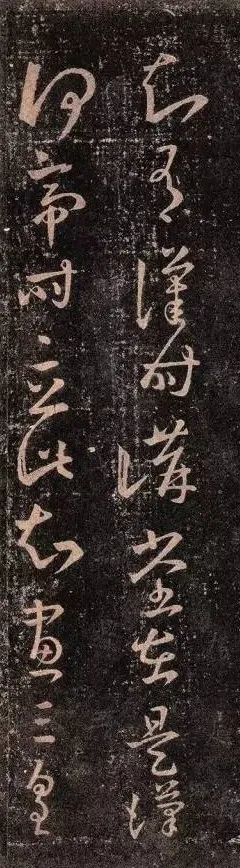 知有漢時講堂在是漢
何帝時立此知畫三皇